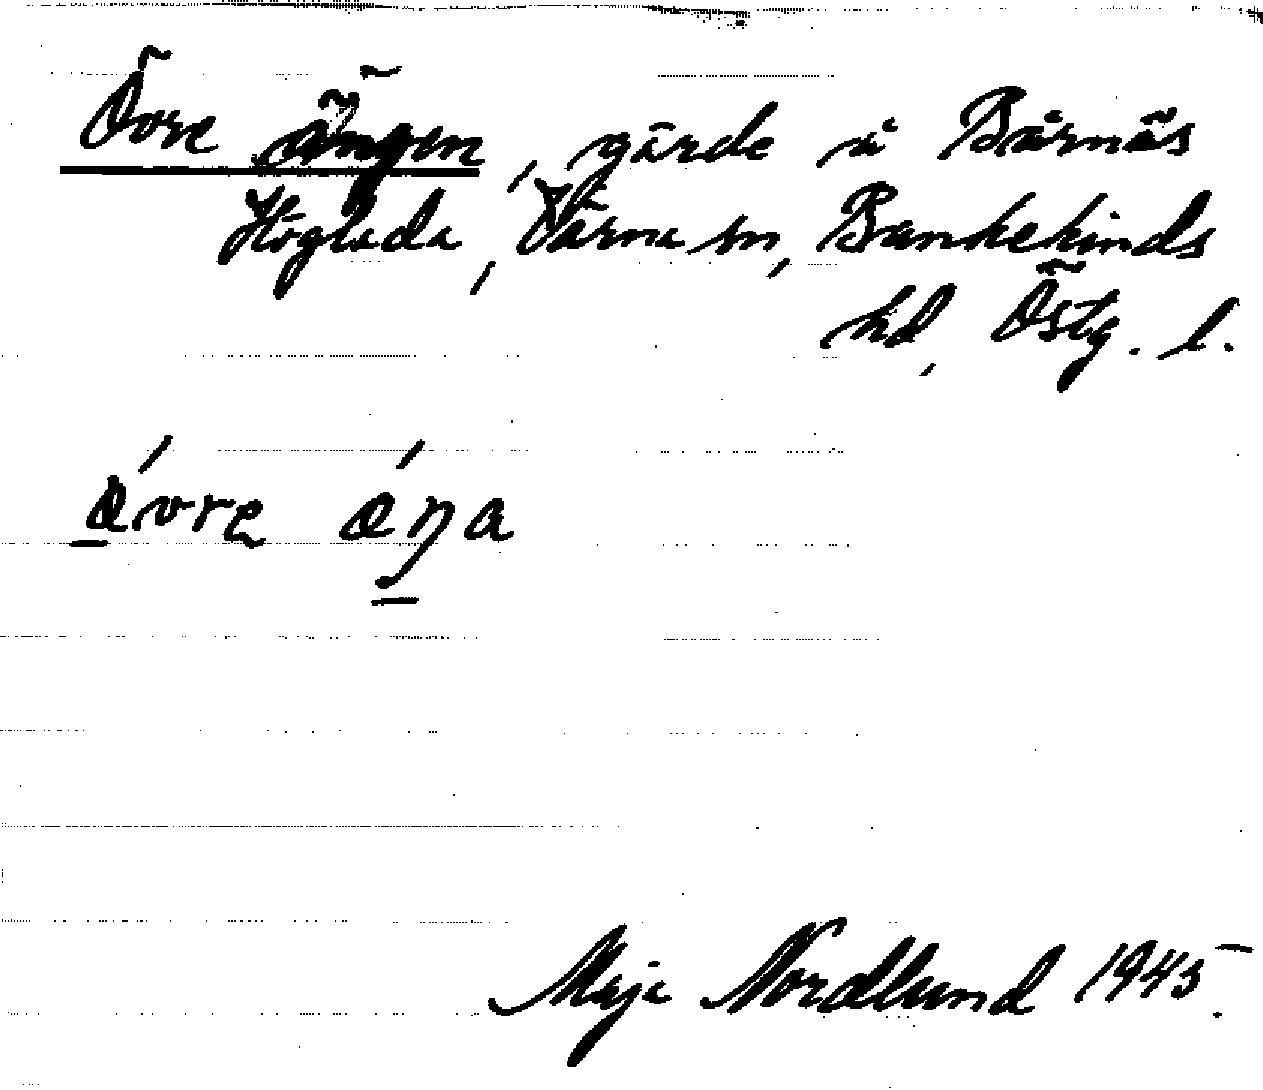 Övre ängen, gärde å Bårnäs
Höglada, Värna sn, Bankekinds
hd, Östg. l.
ǿvre ǽŋa
Maja Nordlund 1945.